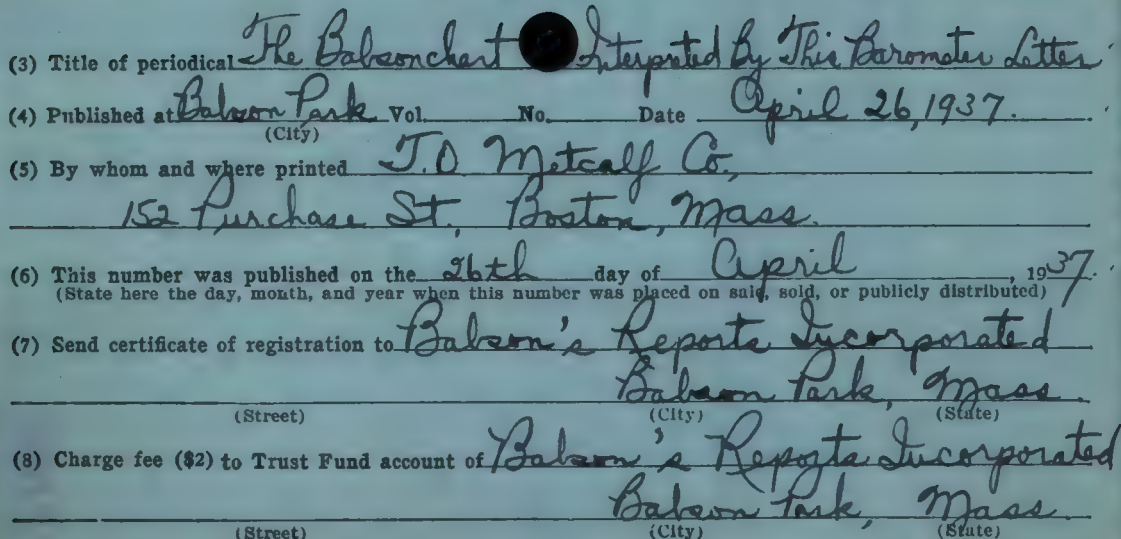 (3) Title of periodical The Babsonchart Interpreted By This Barometer Letter
(4) Published at Babson Park Vol. No. Date April 26, 1937.
(City)
(5) By whom and where printed T.O Metcalf Co.,
152 Purchase St., Boston, Mass.
(6) This number was published on the 26th day of April, 1937.
(State here the day, month, and year when this number was placed on sale, sold, or publicly distributed)
(7) Send certificate of registration to Babson's Reports Incorporated
Babson Park, Mass
(Street) (City) (State)
(8) Charge fee ($2) to Trust Fund account of Babson's Reports Incorporated
Babson Park, Mass
(Street) (City) (State)